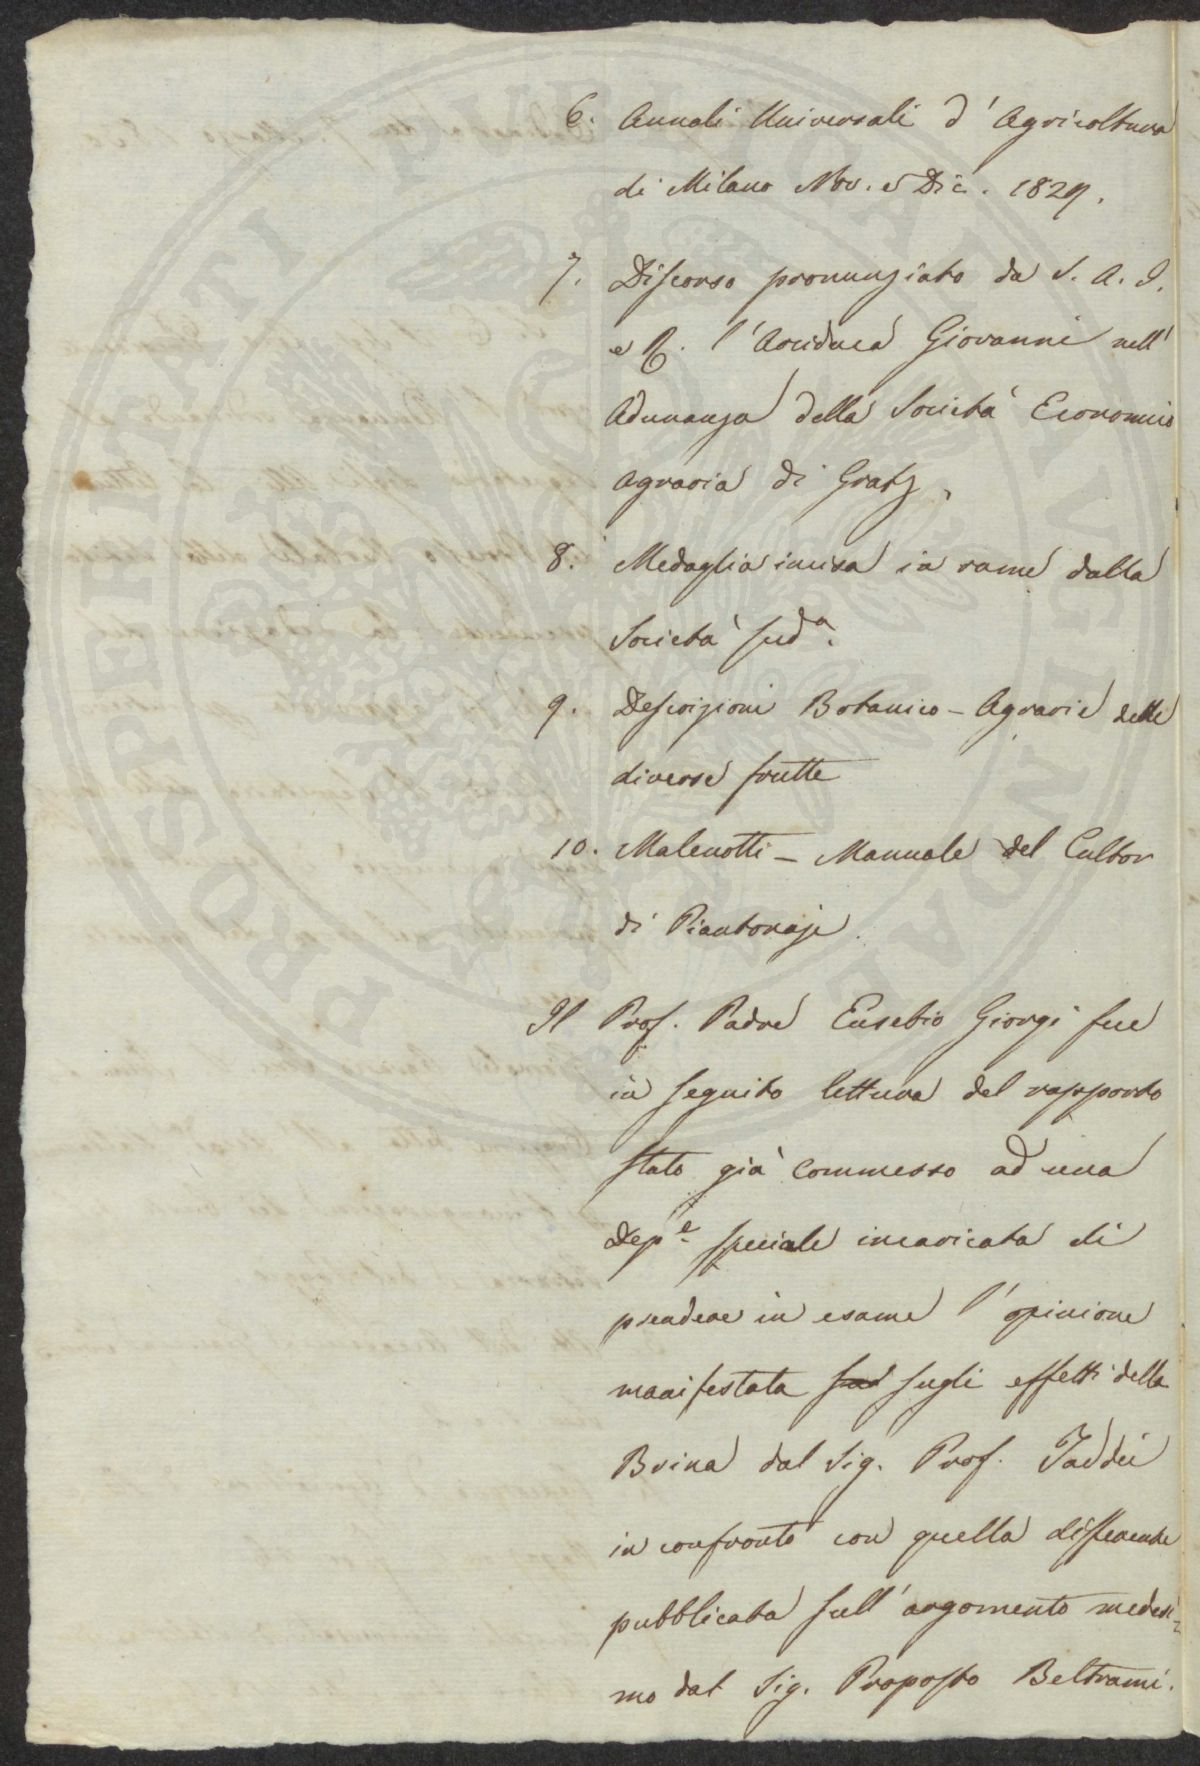 6. Annali Universali d'Agricoltura
di Milano Nov. e Dic. 1829.
7. Discorso pronunziato da S. A. I.
e R. l'Arciduca Giovanni nell'
Adunanza della Società Economico
Agraria di Gratz.
8. Medaglia incisa in rame dalla
Società sud.a
9. Descrizioni Botanico - Agrarie delle
diverse frutte
10. Malenotti - Manuale del Cultor
di Piantonaje.
Il Prof. Padre Eusebio Giorgi fece
in seguito lettura del rapporto
stato già commesso ad una
Dep.e speciale incaricata di
prendere in esame l'opinione
manifestata sugli effetti della
Brina dal Sig. Prof. Taddei
in confronto con quella differente
pubblicata sull'argomento medesi-
mo dal Sig. Proposto Beltrami.
PROSPERITATI PUBLICAE AUGENDAE